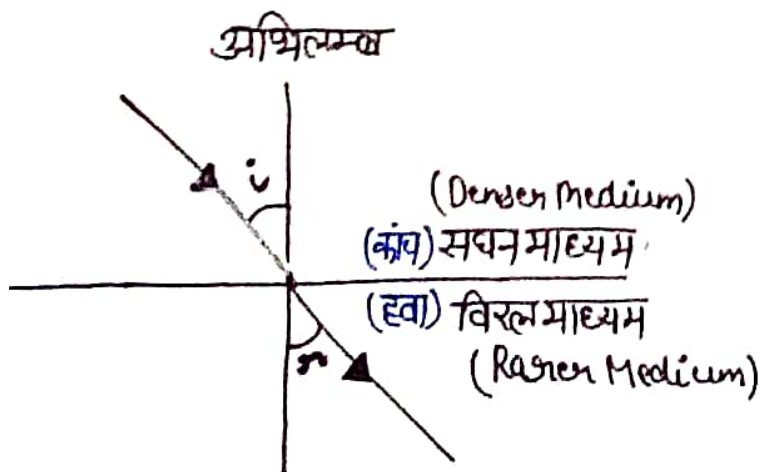 अभिलम्ब
i
(Denser Medium)
(कांच) सघन माध्यम
(हवा) विरल माध्यम
r
(Rarer Medium)